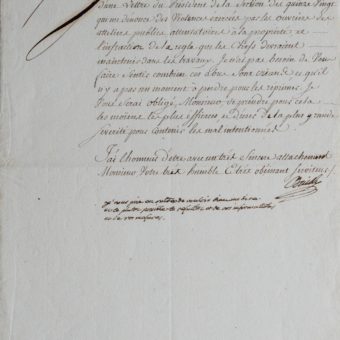 Lettre du Président de la Section des quinze Vingt
qui me dénonce des Violences exercées par les ouvriers des
atteliers publics attentatoires à la propriété et
l'infraction de la regle que les Chefs devraient
maintenir dans les travaux. Je n'ai pas besoin de Vous
faire Sentir combien ces désordres Sont et qu'il
n'y a pas un moment à perdre pour les reprimer. Je
Vous Serai obligé, Monsieur, de prendre pour cela
les moiens les plus efficaces et d'user de la plus grande
sévérité pour contenir les mal intentionnés.
J'ai l'honneur d'etre avec un très Sincere attachement
Monsieur Votre très humble et très obéissant Serviteur
je vous prie de
le plutôt possible du résultat et de vos informations
et de vos mesures.